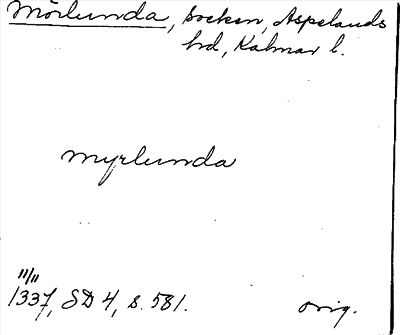 Mörlunda, socken, Aspelands
hd, Kalmar l.
myrlunda
11/11
1337, SD 4, s. 581.
orig.